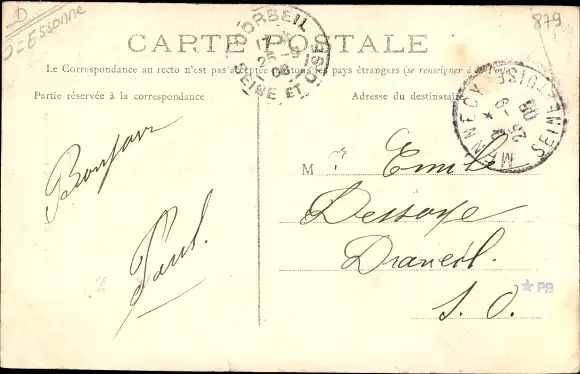 D
D=Essonne
879
CARTE POSTALE
Le Correspondance au recto n'est pas acceptée par tous les pays étrangers (se renseigner à la
Partie réservée à la correspondance
Adresse du destinataire
CORBEIL
17
25 -9
08
SEINE ET OISE
MENNECY
25 -9
08
SEINE ET OISE
Bonjour
Paul.
M r Emile
Dessoye
Draveil.
S. O.
PB